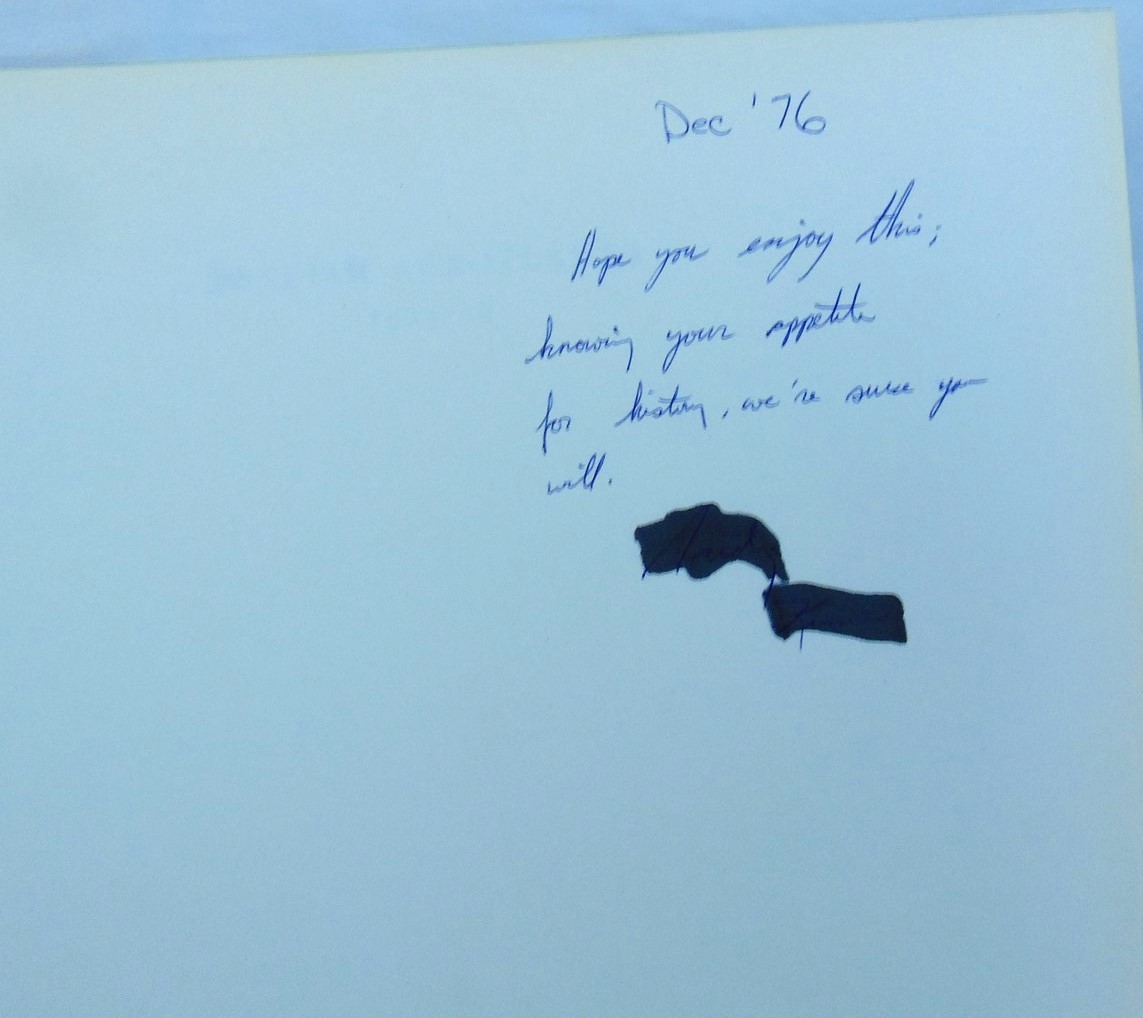 Dec '76
Hope you enjoy this;
knowing your appetite
for history, we're sure you
will.